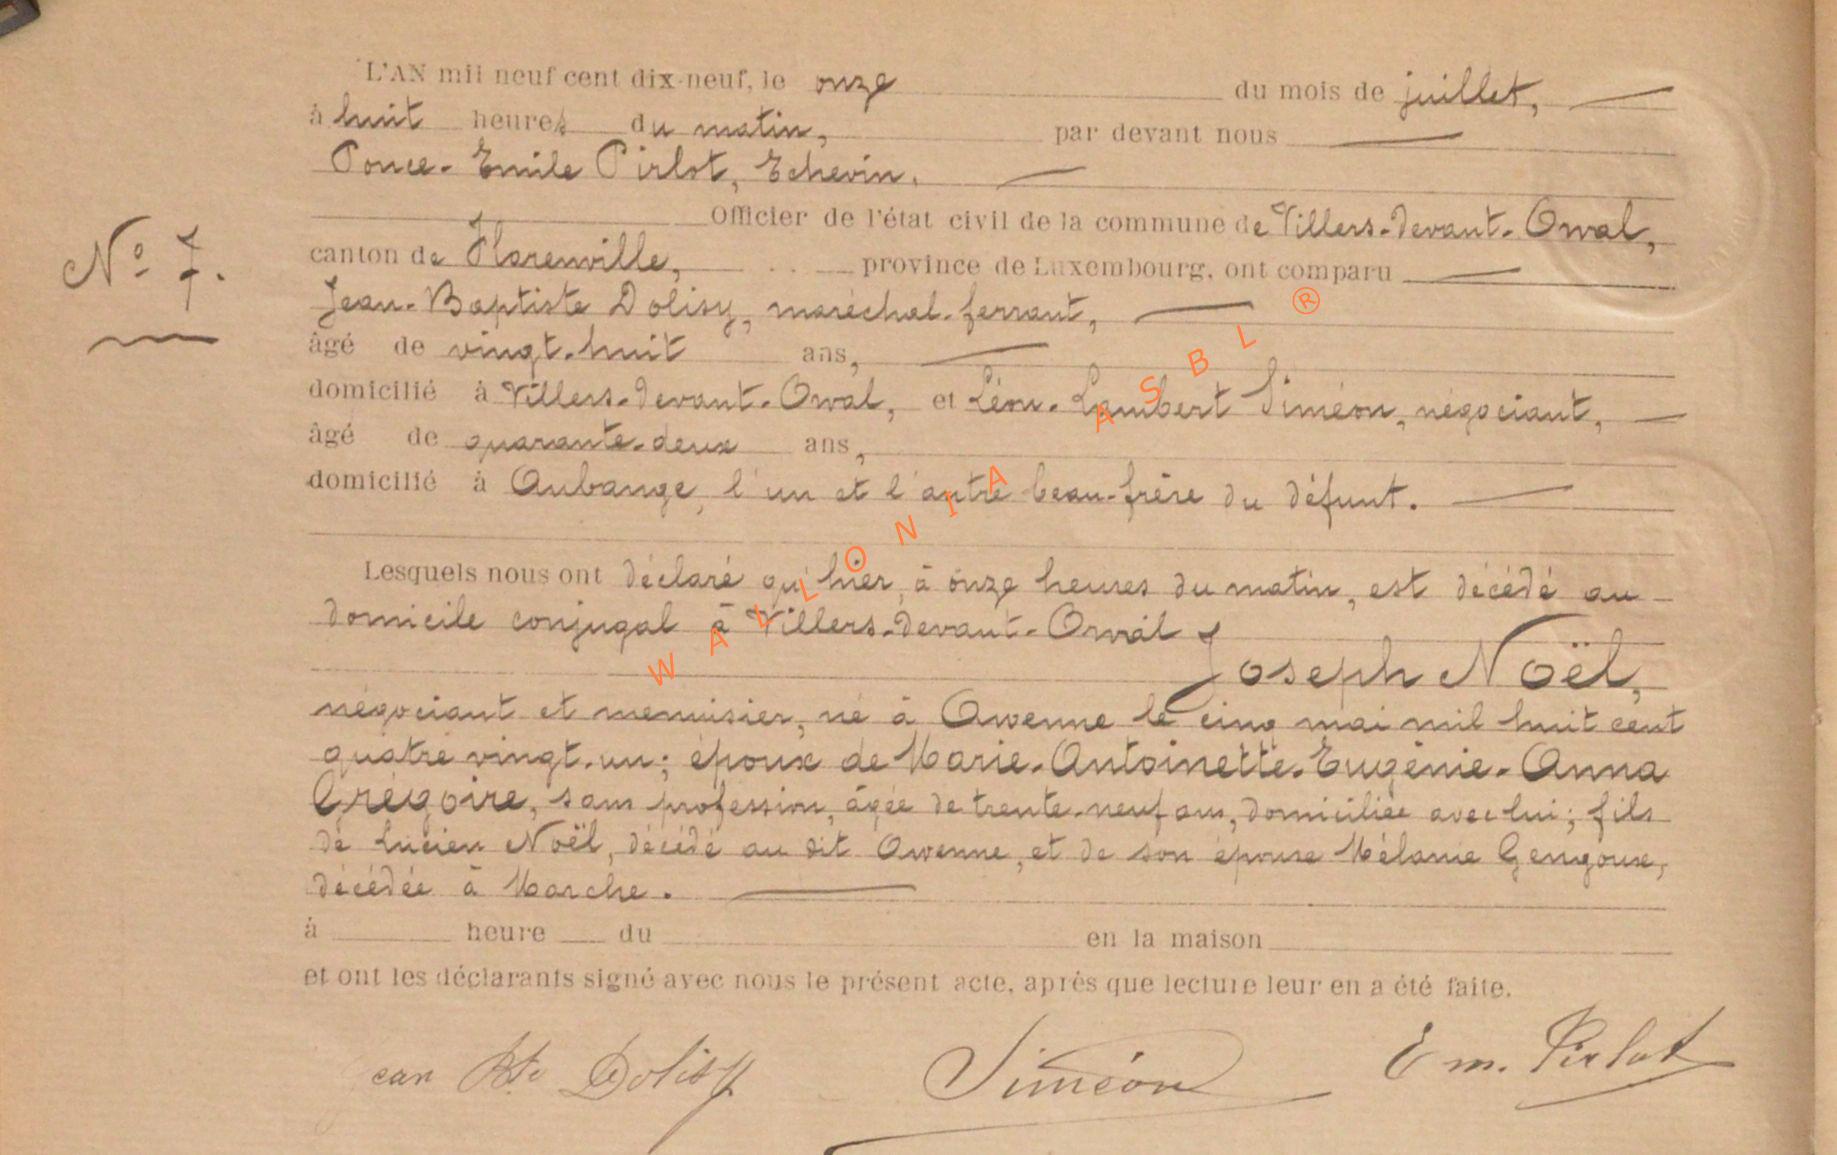 L'AN mil neuf cent dix-neuf, le onze du mois de juillet,
à huit heures du matin, par devant nous
Ponce-Emile Pirlot, Echevin,
Officier de l'état civil de la commune de Villers-devant-Orval,
N° 7.
canton de Florenville, province de Luxembourg, ont comparu
Jean-Baptiste Dolisy, maréchal-ferrant,
âgé de vingt-huit ans,
domicilié à Villers-devant-Orval, et Léon-Lambert Siméon, négociant,
âgé de quarante-deux ans,
domicilié à Aubange, l'un et l'autre beau-frère du défunt.
Lesquels nous ont déclaré qu'hier, à onze heures du matin, est décédé au
domicile conjugal à Villers-devant-Orval
Joseph Noël,
négociant et menuisier, né à Awenne le cinq mai mil huit cent
quatre vingt-un; époux de Marie-Antoinette-Eugénie-Anna
Grégoire, sans profession, âgée de trente-neuf ans, domiciliée avec lui; fils
de Lucien Noël, décédé au dit Awenne, et de son épouse Mélanie Gengoux,
décédée à Marche.
à heure du en la maison
et ont les déclarants signé avec nous le présent acte, après que lecture leur en a été faite.
Jean Bte Dolisy Siméon Em. Pirlot
WALLONIA ASBL ®